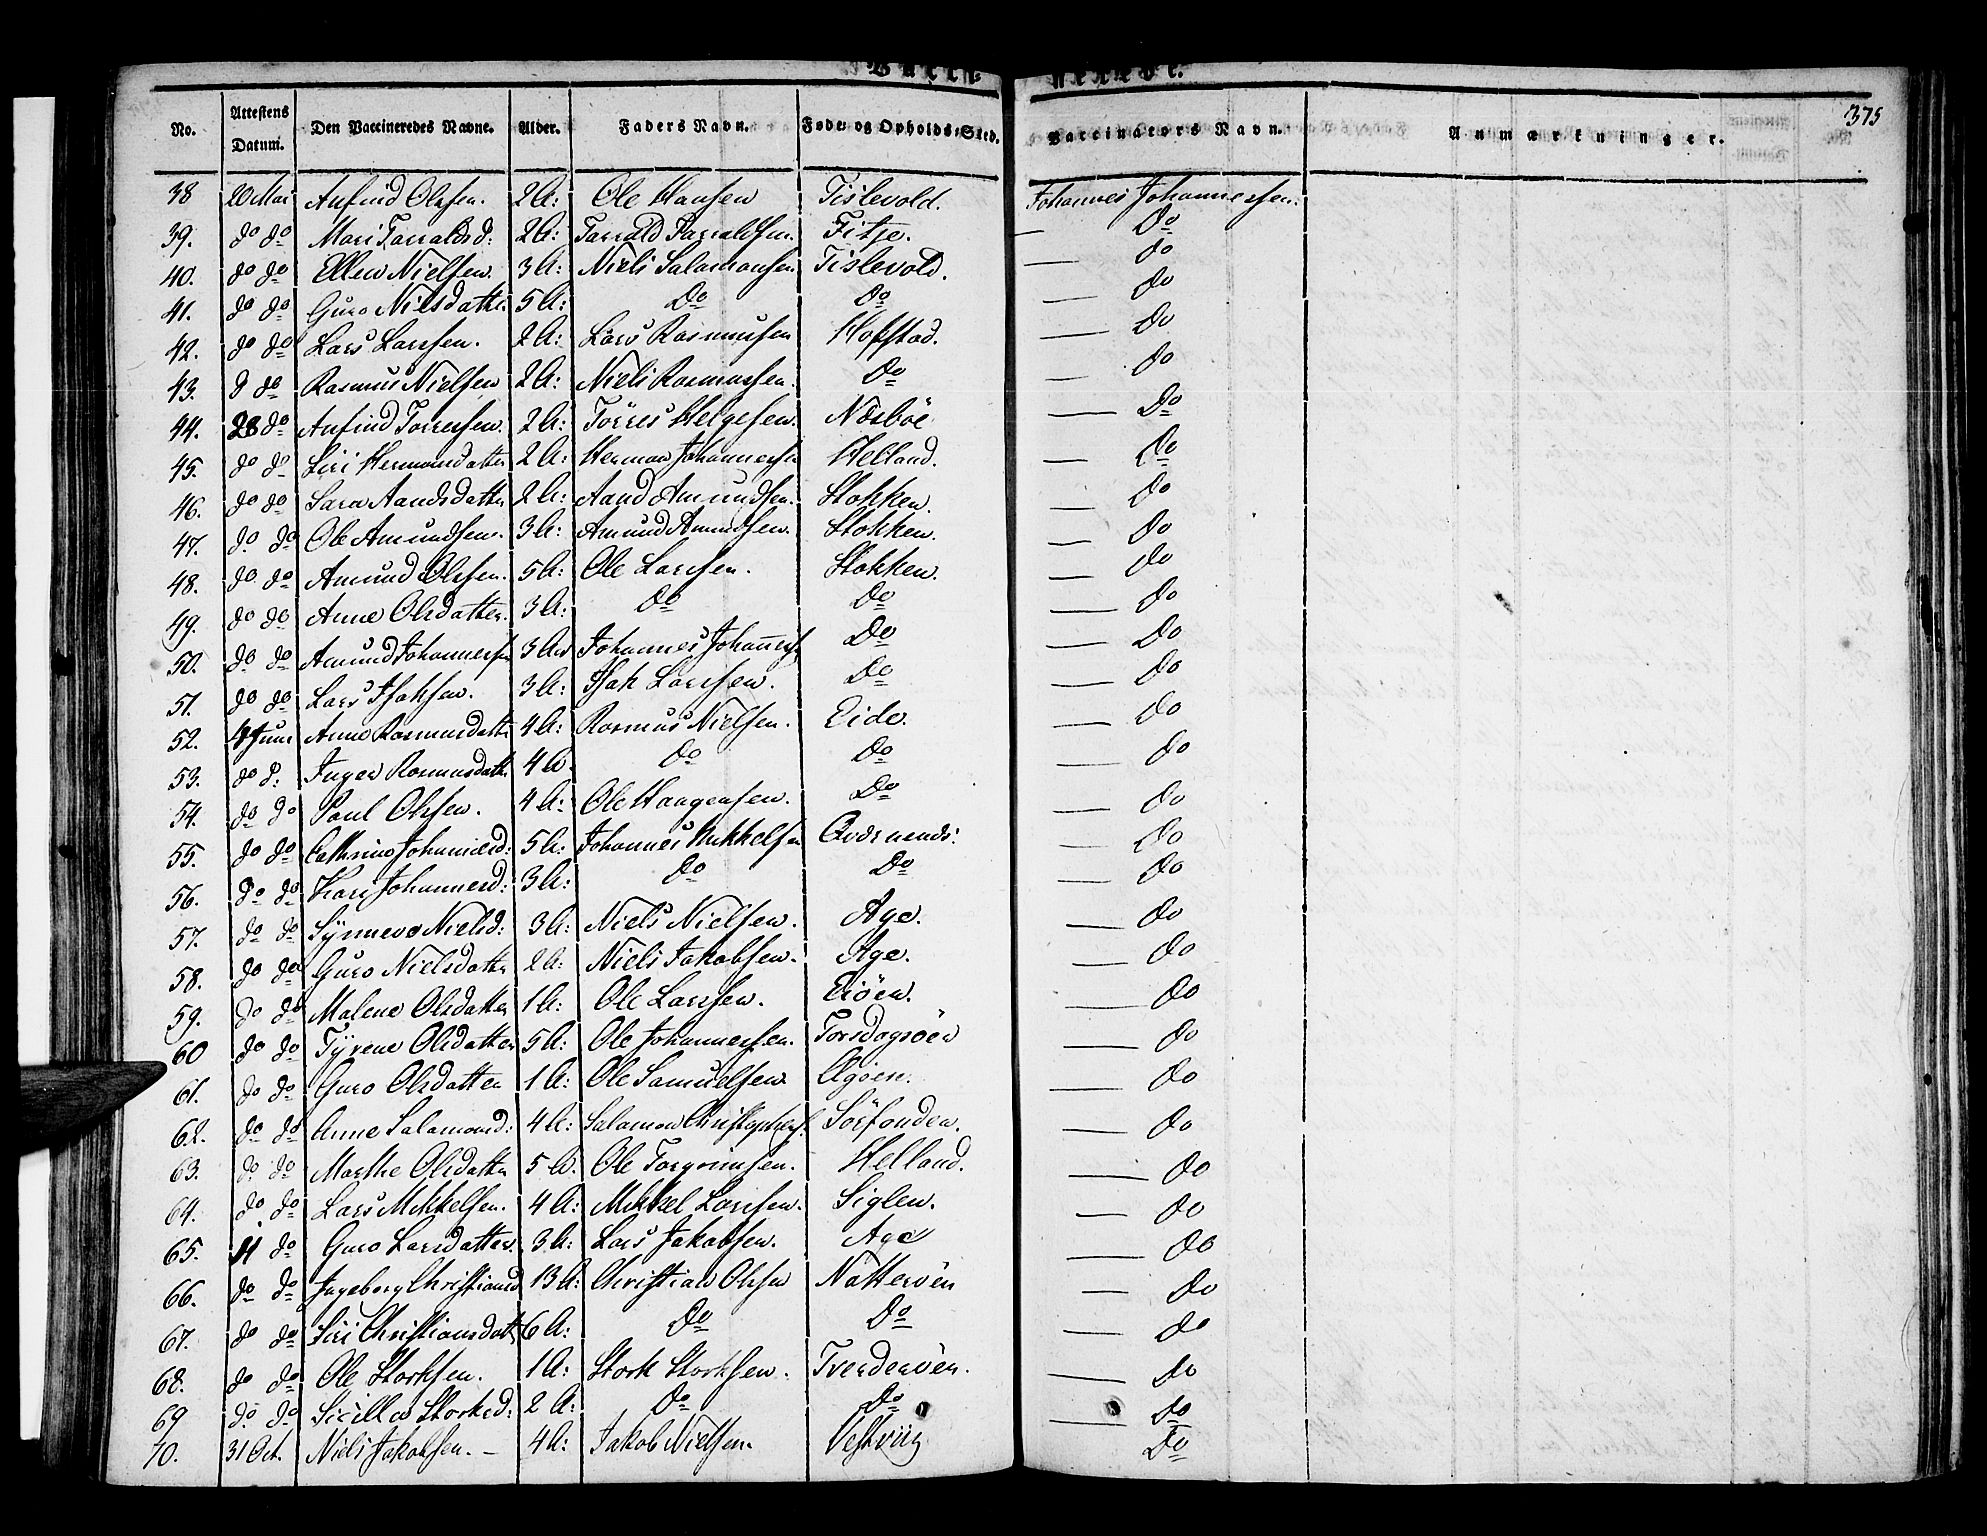 Vacci- nerede.
375
No. Attestens Datum. Den Vaccineredes Navne. Alder. Faders Navn. Føde- og Opholds-Sted. Vaccinators Navn. Anmærkninger.
38 20 Mai Anfind Olssen. 2 A: Ole Hansen Tislevold. Johannes Johannessen.
39. do do Mari Tarraldsd: 2 A: Tarrald Tarraldsen. Fitje. — Do
40. do do Ellen Nielsen. 3 A: Niels Salamonsen Tislevold. — do
41. do do Guro Nielsdatter 5 A: Do Do — do
42. do do Lars Larssen. 2 A: Lars Rasmussen Hofstad. — Do
43. d do Rasmus Nielsen 2 A: Niels Rasmussen. Do — do
44. 28 do Anfind Torressen. 2 A: Törres Helgesen. Næsböe — Do
45. do do Siri Hermansdatter 2 A: Herman Johannessen Helland. — Do
46. do do Sara Aandsdatter 2 A: Aand Amundsen. Stokken. — Do
47. do do Ole Amundsen. 3 A: Amund Amundsen. Stokken. — Do
48. do do Amund Olssen. 5 A: Ole Larssen. Stokken. — do
49. do do Anne Olsdatter. 3 A: Do Do — do
50. do do Amund Johannessen 3 A: Johannes Johanness. Do — Do
51. do do Lars Isaksen. 3 A: Isak Larssen. Do — Do
52. 4 Juni Anne Rasmusdatter 4 A: Rasmus Nielsen. Eide. — do
53. do d. Inger Rasmusdatter 4 A. Do Do — Do
54. do do Paul Olssen. 4 A: Ole Haugensen. Do — do
55. do do Cathrine Johannesd: 5 A: Johannes Mikkelsen — do
56. do do Kari Johannesd: 3 A: Do Do — do
57. do do Synneve Nielsd: 3 A: Niels Nielsen. Age. — do
58. do do Guro Nielsdatter 2 A: Niels Jakobsen. Age. — do
59. do do Malene Olsdatter 1 A: Ole Larssen. — do
60 do do Tyrene Olsdatter 5 A: Ole Johannessen. Torsdagsöen — do
61. do do Guro Olsdatter 1 A: Ole Samuelsen. Agöen. — do
62. do do Anne Salamonsd: 4 A: Salamon Christophers. Sörfonden. — do
63. do do Marthe Olsdatter 5 A. Ole Torgrimsen. Helland. — do
64. do do Lars Mikkelsen. 4 A: Mikkel Larssen. Siglen. — do
65. 11 do Guro Larsdatter 3 A: Lars Jakobsen. Age — do
66. do do Ingeborg Christiansd 13 A: Christian Olssen Nattervön — do
67. do do Siri Christiansdatt 6 A: Do Do — do
68. do do Ole Storksen. 1 A: Stork Storksen. Trendervön. — do
69 do do Sicilla Storksd: 2 A: Do Do — do
70. 31 Oct. Niels Jakobsen. — 4 A: Jakob Nielsen. Vestvüg Do